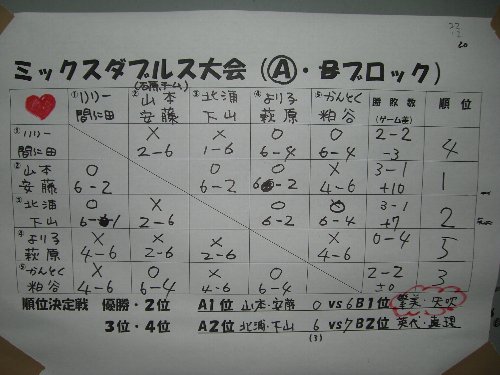 ミックスダブルス大会（Ⓐ・Bブロック）
（石原チーム）
①リリー ②山本 ③北浦 ④より子 ⑤かんとく 勝敗数 順位
間仁田 安藤 下山 萩原 粕谷 （ゲーム差）
①リリー × × ○ ○ 2-2 4
間仁田 2-6 1-6 6-4 6-4 -3
②山本 ○ ○ ○ × 3-1 1
安藤 6-2 6-2 6-2 4-6 +10
③北浦 ○ × ○ ○ 3-1 2
下山 6-1 2-6 6-2 6-4 +7
④より子 × × × × 0-4 5
萩原 4-6 2-6 2-6 4-6
⑤かんとく × ○ × ○ 2-2 3
粕谷 4-6 6-4 4-6 6-4 ±0
順位決定戦 優勝・2位 A1位 山本・安藤 0 vs 6 B1位
3位・4位 A2位 北浦・下山 6 vs 7 B2位 英代・真理
(3)
20